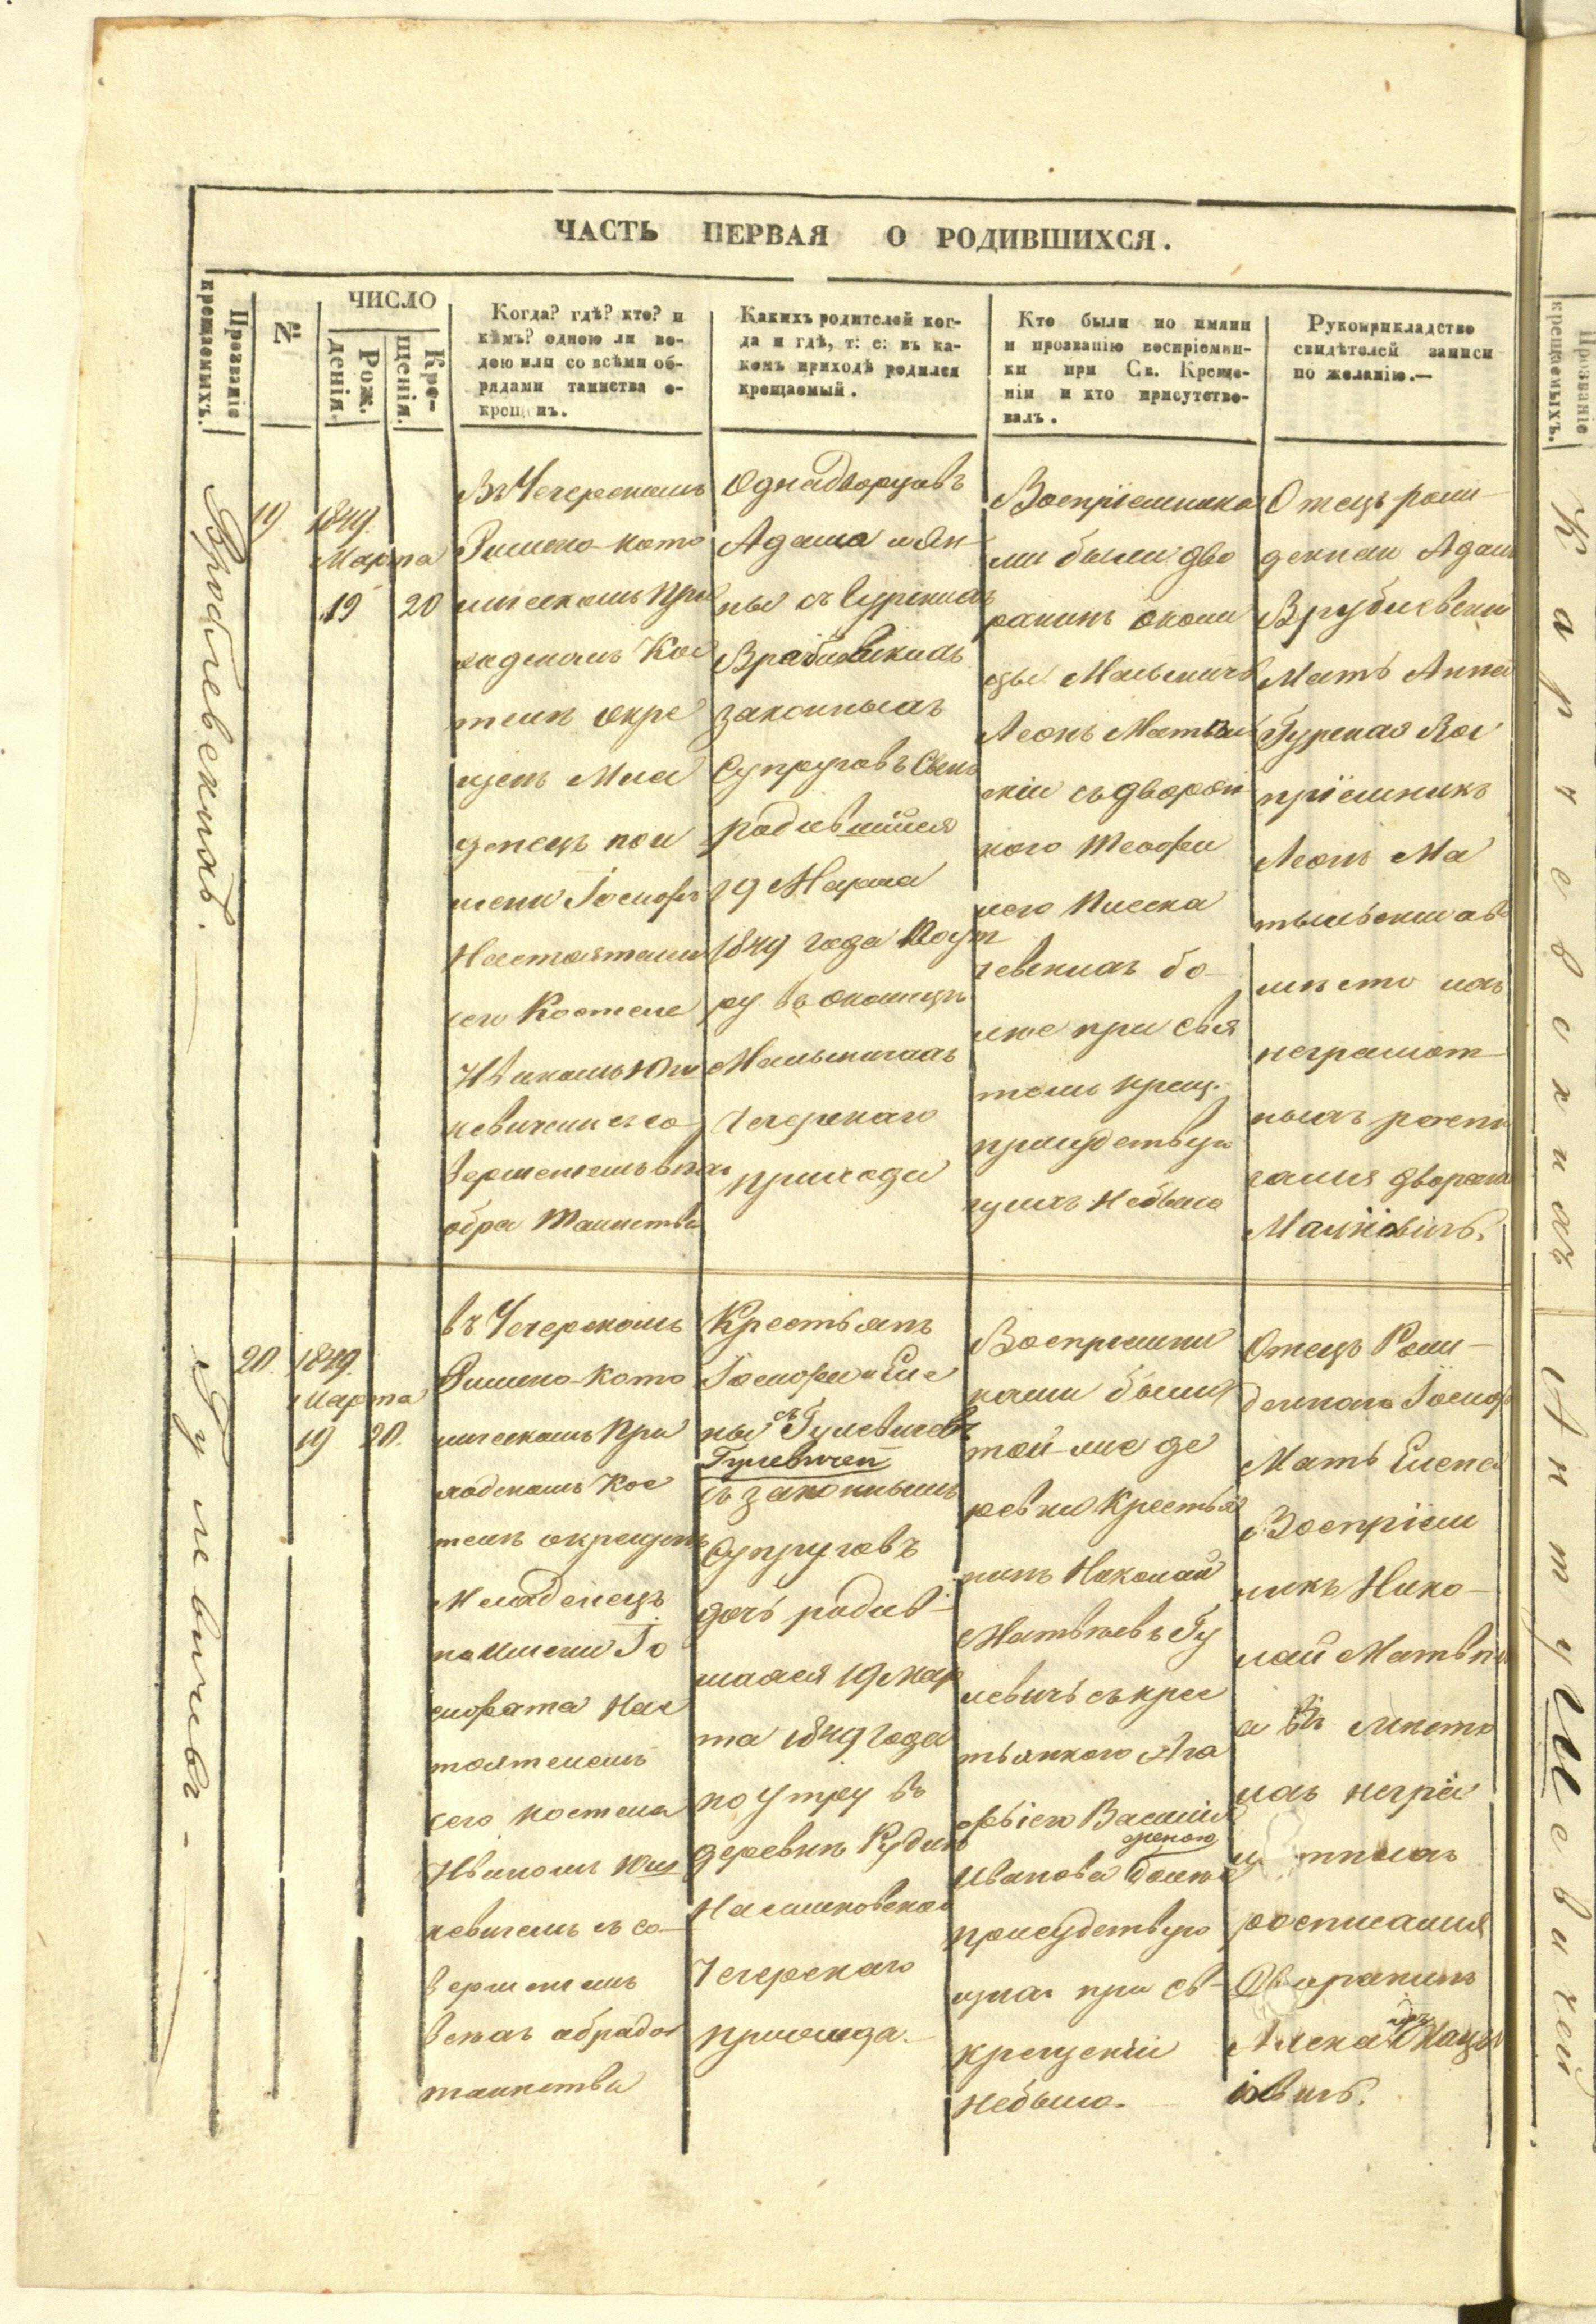 ЧАСТЬ ПЕРВАЯ О РОДИВШИХСЯ.
Прозваніе
крещаемыхъ.
№
ЧИСЛО
Рож.
денія.
Кре-
щенія.
Когда? гдѣ? кто? и
кѣмъ? одною ли во-
дою или со всѣми об-
рядами таинства о-
крещенъ.
Какихъ родителей ког-
да и гдѣ, т: е: въ ка-
комъ приходѣ родился
крещаемый.
Кто были по имяни
и прозванію воспріемни-
ки при Св. Креще-
ніи и кто присутство-
валъ.
Рукоприкладство
свидѣтелей записи
по желанію.—
Врублевскихъ.
19
1849.
Марта
19
20
Въ Чечерскомъ
Римско-като
лическомъ При
ходскомъ Кос
телѣ окре
щенъ Мла
денецъ по и
мени Іосифъ
Настоятелем
сего Костела
Юш
кевичемъ съ со
вершеніемъ всѣхъ
обря Таинства
Однодворцовъ
Адама и Ан-
ны съ Гурскихъ
Врублевскихъ
законныхъ
Супруговъ Сынъ
родившійся
19 Марта
1849 года Поут
ру въ околицѣ
Мальничахъ
Чечерскаго
прихода
Воспріемника
ми были дво
ранинъ околи
цы Мальничъ
Леонъ
скій съ дворян
кого Теофи
лею
чевскихъ бо-
лѣе при свя
томъ крещ.
присудствую
щихъ небыло
Отецъ рош-
денкаи Адам
Врублевски
Мать Анна
Гурская Вос
пріемникъ
Леонъ Ма
а в
мѣсто ихъ
неграмот-
ныхъ роспи
сался дворани
20.
1849.
Марта
19
20.
Гулевичевъ -
въ Чечерскомъ
Римско-като
лическомъ При
ходскомъ Кос
телѣ окрещенъ
Младенецъ
по имени Іо
сифата Нас
тоятелемъ
сего костела
Юш
кевичемъ съ со-
вершеніемъ
всѣхъ абрадов
таинства
Крестьянъ
Іосифа и Еле
ны съ Гулевичевъ
Гулевичей
съ законныхъ
Супруговъ
дочь родив-
шаяся 19 мар
та 1849 года
по утру въ
деревнѣ Рудни
Чечерскаго
прихода.-
Воспріемни
ками были
той-же де
ревни Крестья
нинъ Николай
Матвѣевъ Гу
левичъ съ крес
тьянкою Ага
фьіею Васили
женою
Иванова болѣе
присудствую
щихъ при св-
крещеніи
небыло.
Отецъ Рош-
деннаго Іосиф
Мать Елена
Воспріем
никъ Нико-
лай Матвѣи
а въ мѣсто
ихъ негра
росписался
Дворанинъ
Алека
Прозваніе
крещаемыхъ.